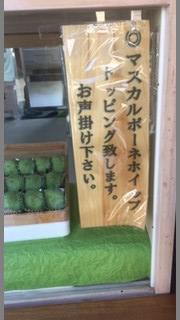 ◎マスカルポーネホイップ
トッピング致します。
お声掛け下さい。